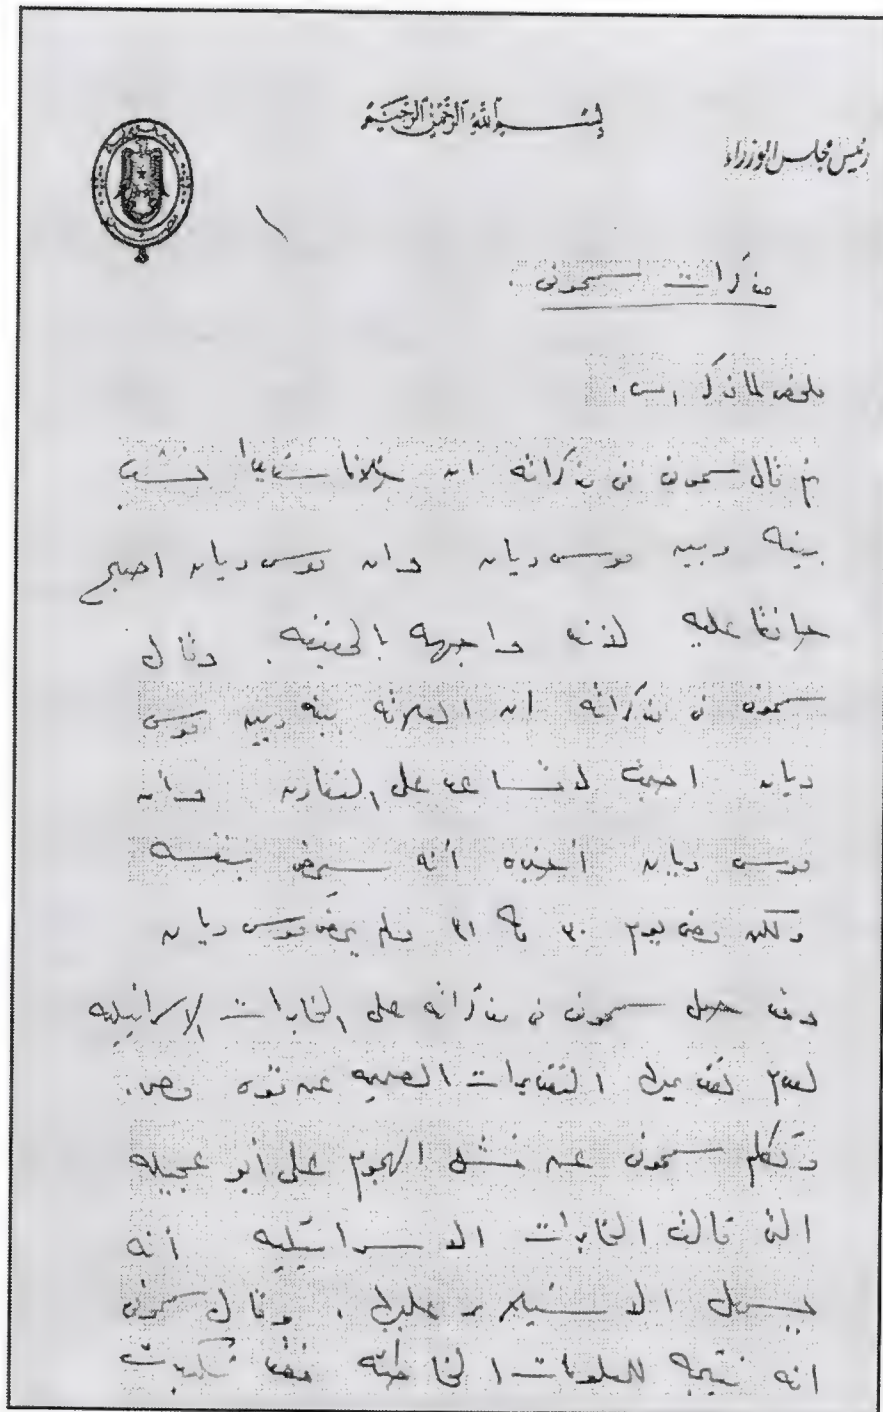 بسم الله الرحمن الرحيم
رئيس مجلس الوزراء
مذكرات سمحوني .
ملخص المذكرات .
قال سمحوني في مذكراته ان خلافا شديدا نشب
بينه وبين موسى ديان وان موسى ديان اصبح
حانقا عليه لانه واجهه بالحقيقه وقال
سمحوني في مذكراته ان العلاقه بينه وبين موسى
ديان اصبحت لا تساعد على التعاون وان
موسى ديان أخبره أنه سيحضر بنفسه
ولكن مضى يوم ٣٠ و ٣١ ولم يحضر موسى ديان
وقد حمل سمحوني في مذكراته على المخابرات الاسرائيليه
لعدم تقديمها التقديرات الصحيحه عن قوة مصر .
وتكلم سمحوني عن فشل الهجوم على أبو عجيله
التي قالت المخابرات الاسرائيليه أنه
يسهل الاستيلاء عليها . وقال سمحوني
انه نتيجه للمعلومات الخاطئه فقد تكبدت